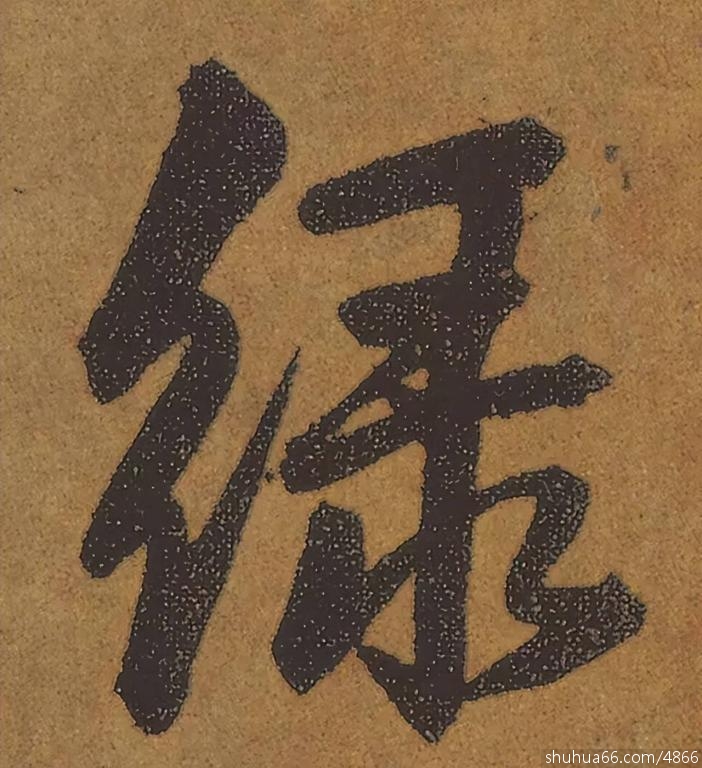 绿
shuhua66.com/4866